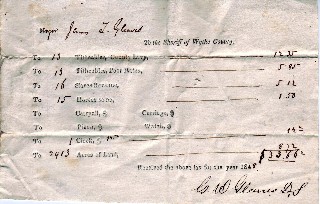 Major James T. Gleaves
To the Sheriff of Wythe County,
To 13 Titheables, County Levy, 12.35
To 13 Titheables, Poor Rates, 5.85
To 16 Slaves 5.12
To 15 Horses 1.50
To Carryall, $ Carriage, $
To Piano, $ Watch, $
To 1 Clock, $ 12½
To 2413 Acres of Land,
Received the above tax for the year 184
C D Gleaves D.S.